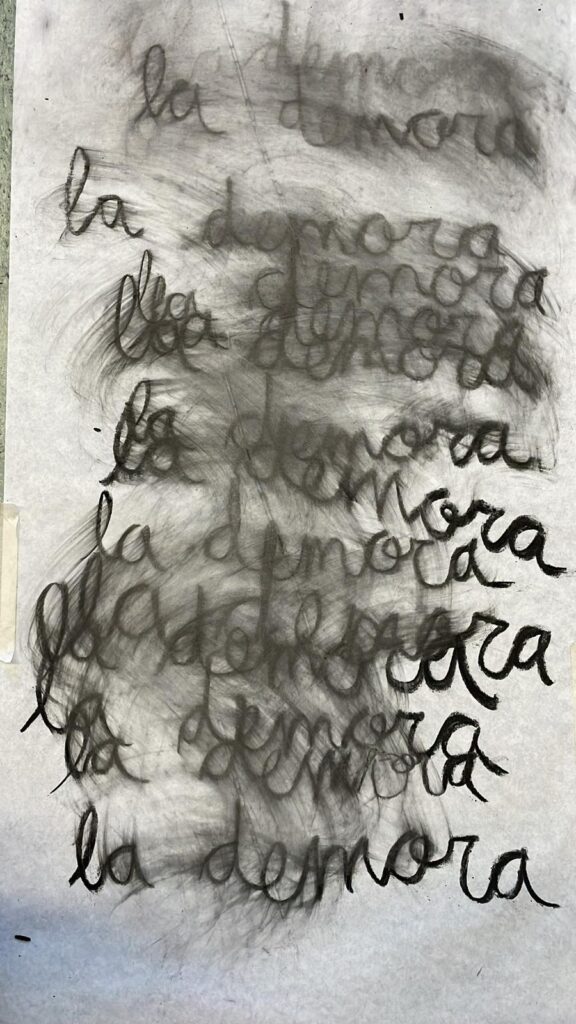 demora
la demora
la demora
la demora
la demora
la demora
la demora
la demora
la demora
la demora
la demora
la demora
la demora